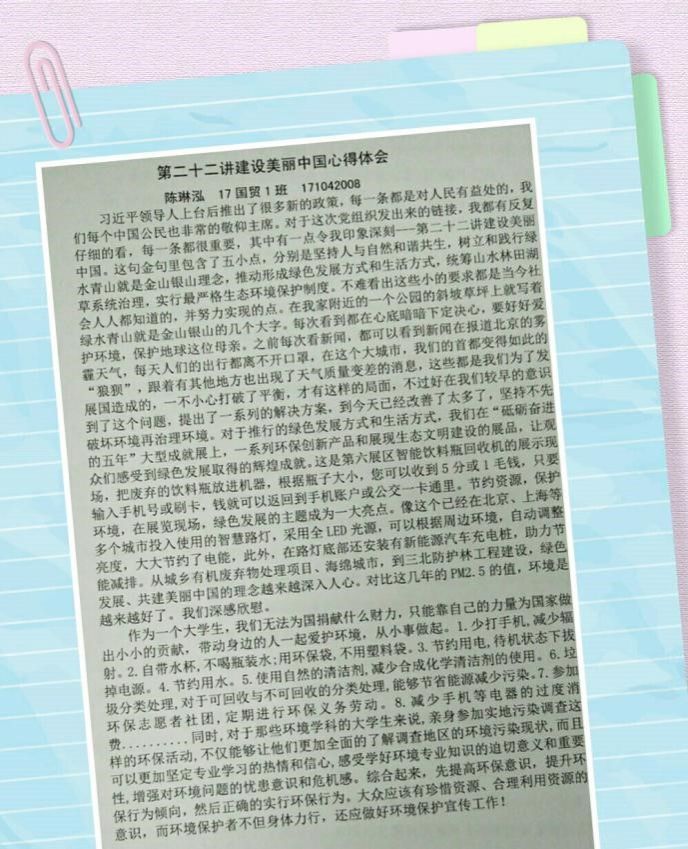 第二十二讲建设美丽中国心得体会
陈琳泓 17国贸1班 171042008
习近平领导人上台后推出了很多新的政策，每一条都是对人民有益处的，我
们每个中国公民也非常的敬仰主席。对于这次党组织发出来的链接，我都有反复
仔细的看，每一条都很重要，其中有一点令我印象深刻---第二十二讲建设美丽
中国。这句金句里包含了五小点，分别是坚持人与自然和谐共生，树立和践行绿
水青山就是金山银山理念，推动形成绿色发展方式和生活方式，统筹山水林田湖
草系统治理，实行最严格生态环境保护制度。不难看出这些小的要求都是当今社
会人人都知道的，并努力实现的点。在我家附近的一个公园的斜坡草坪上就写着
绿水青山就是金山银山的几个大字。每次看到都在心底暗暗下定决心，要好好爱
护环境，保护地球这位母亲。之前每次看新闻，都可以看到新闻在报道北京的雾
霾天气，每天人们的出行都离不开口罩，在这个大城市，我们的首都变得如此的
“狼狈”，跟着有其他地方也出现了天气质量变差的消息，这些都是我们为了发
展国造成的，一不小心打破了平衡，才有这样的局面，不过好在我们较早的意识
到了这个问题，提出了一系列的解决方案，到今天已经改善了太多了，坚持不先
破坏环境再治理环境。对于推行的绿色发展方式和生活方式，我们在“砥砺奋进
的五年”大型成就展上，一系列环保创新产品和展现生态文明建设的展品，让观
众们感受到绿色发展取得的辉煌成就。这是第六展区智能饮料瓶回收机的展示现
场，把废弃的饮料瓶放进机器，根据瓶子大小，您可以收到5分或1毛钱，只要
输入手机号或刷卡，钱就可以返回到手机账户或公交一卡通里。节约资源，保护
环境，在展览现场，绿色发展的主题成为一大亮点。像这个已经在北京、上海等
多个城市投入使用的智慧路灯，采用全LED光源，可以根据周边环境，自动调整
亮度，大大节约了电能，此外，在路灯底部还安装有新能源汽车充电桩，助力节
能减排。从城乡有机废弃物处理项目、海绵城市，到三北防护林工程建设，绿色
发展、共建美丽中国的理念越来越深入人心。对比这几年的PM2.5的值，环境是
越来越好了。我们深感欣慰。
作为一个大学生，我们无法为国捐献什么财力，只能靠自己的力量为国家做
出小小的贡献，带动身边的人一起爱护环境，从小事做起。1.少打手机，减少辐
射。2.自带水杯，不喝瓶装水；用环保袋，不用塑料袋。3.节约用电，待机状态下拔
掉电源。4.节约用水。5.使用自然的清洁剂，减少合成化学清洁剂的使用。6.垃
圾分类处理，对于可回收与不可回收的分类处理，能够节省能源减少污染。7.参加
环保志愿者社团，定期进行环保义务劳动。8.减少手机等电器的过度消
费..........同时，对于那些环境学科的大学生来说，亲身参加实地污染调查这
样的环保活动，不仅能够让他们更加全面的了解调查地区的环境污染现状，而且
可以更加坚定专业学习的热情和信心，感受学好环境专业知识的迫切意义和重要
性，增强对环境问题的忧患意识和危机感。综合起来，先提高环保意识，提升环
保行为倾向，然后正确的实行环保行为。大众应该有珍惜资源、合理利用资源的
意识，而环境保护者不但身体力行，还应做好环境保护宣传工作！